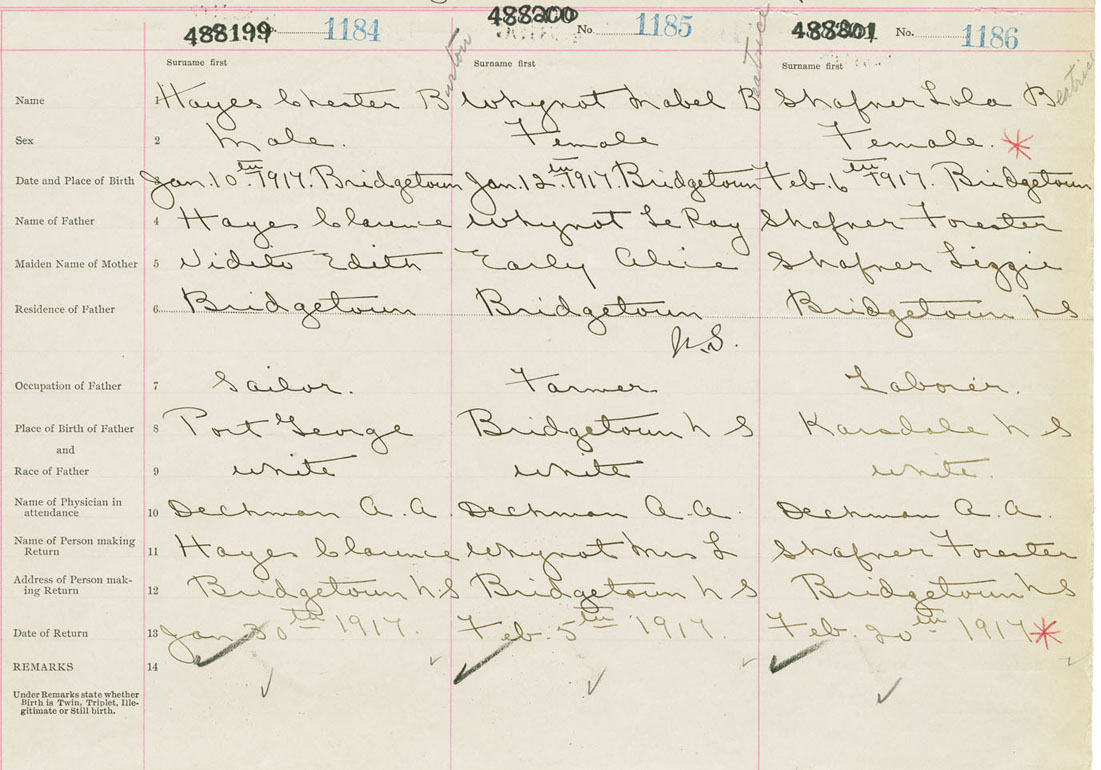 488199 1184 488200 No. 1185 488201 No. 1186
Surname first Surname first Surname first
Name 1 Hayes Chester Burton Whynot Mabel Beatrice Shafner Lola Beatrice
Sex 2 Male. Female Female. *
Date and Place of Birth 3 Jan. 10th 1917. Bridgetown Jan. 12th 1917. Bridgetown Feb. 6th 1917. Bridgetown
Name of Father 4 Hayes Clarence Whynot LeRay Shafner Forester
Maiden Name of Mother 5 Vidito Edith Early Alice Shafner Lizzie
Residence of Father 6 Bridgetown Bridgetown Bridgetown N S
N.S.
Occupation of Father 7 Sailor. Farmer Laborer.
Place of Birth of Father 8 Port George Bridgetown N S Karsdale N S
and
Race of Father 9 white white white.
Name of Physician in
attendance 10 Dechman A. A. Dechman A. A. Dechman A. A.
Name of Person making
Return 11 Hayes Clarence Whynot Mrs L Shafner Forester
Address of Person mak-
ing Return 12 Bridgetown N.S Bridgetown N S Bridgetown N S
Date of Return 13 Jan 30th 1917. Feb. 5th 1917. Feb. 20th 1917 *
REMARKS 14
Under Remarks state whether
Birth is Twin, Triplet, Ille-
gitimate or Still birth.